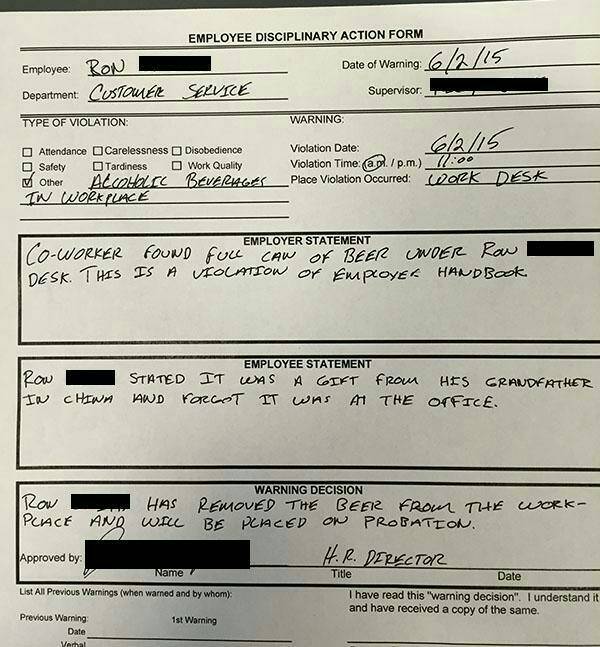 EMPLOYEE DISCIPLINARY ACTION FORM
Employee: RON
Date of Warning: 6/2/15
Department: CUSTOMER SERVICE
Supervisor:
TYPE OF VIOLATION:
WARNING:
Attendance Carelessness Disobedience
Violation Date: 6/2/15
Safety Tardiness Work Quality
Violation Time: (a.m. / p.m.) 11:00
Other ALCOHOLIC BEVERAGES
Place Violation Occurred: WORK DESK
IN WORKPLACE
EMPLOYER STATEMENT
CO-WORKER FOUND FULL CAN OF BEER UNDER RON
DESK. THIS IS A VIOLATION OF EMPLOYEE HANDBOOK.
EMPLOYEE STATEMENT
RON STATED IT WAS A GIFT FROM HIS GRANDFATHER
IN CHINA AND FORGOT IT WAS AT THE OFFICE.
WARNING DECISION
RON HAS REMOVED THE BEER FROM THE WORK-
PLACE AND WILL BE PLACED ON PROBATION.
Approved by: H.R. DIRECTOR
Name Title Date
List All Previous Warnings (when warned and by whom):
I have read this "warning decision". I understand it
and have received a copy of the same.
Previous Warning: 1st Warning
Date
Verbal